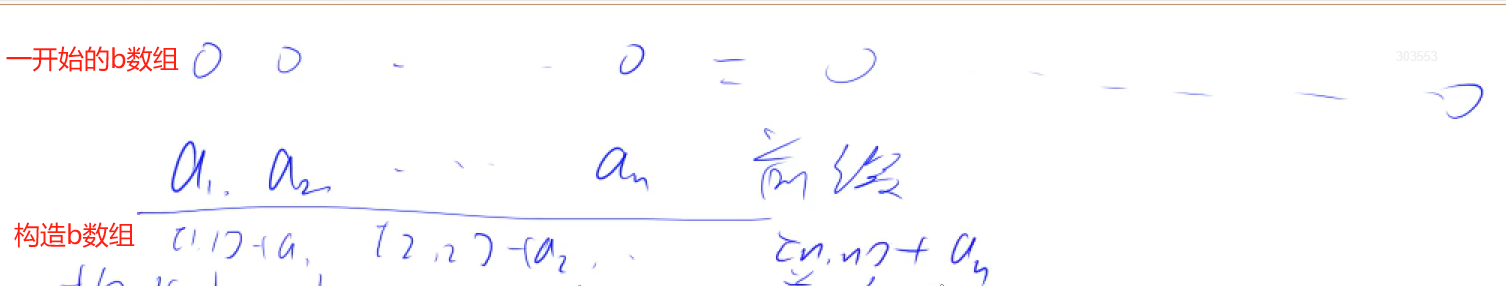 一开始的b数组 0 0 - - 0 = 0 - - - - - 0
303553
a₁, a₂ - ·· aₙ 前缀
构造b数组 [1,1]+a₁ [2,2]+a₂, ·· [n,n]+aₙ